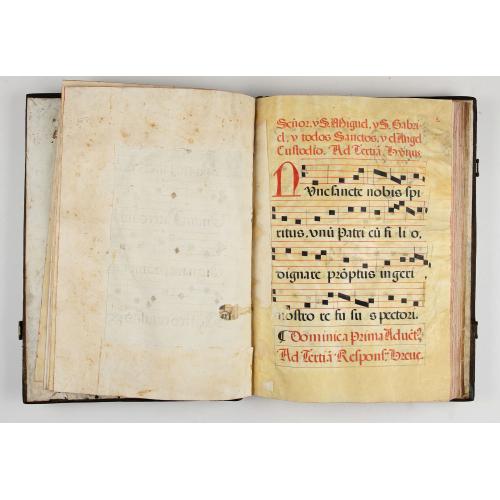 Señor, y S. Miguel, y S. Gabri
el, y todos Sanctos, y el Angel
Custodio. Ad Tertiã. Hỹnus.
Nunc sancte nobis spi
ritus, unũ Patri cũ fi li o,
dignare prõptus ingeri
nostro re fu su s pectori.
Dominica Prima Aduẽt⁹.
Ad Tertiã Respons. breue.